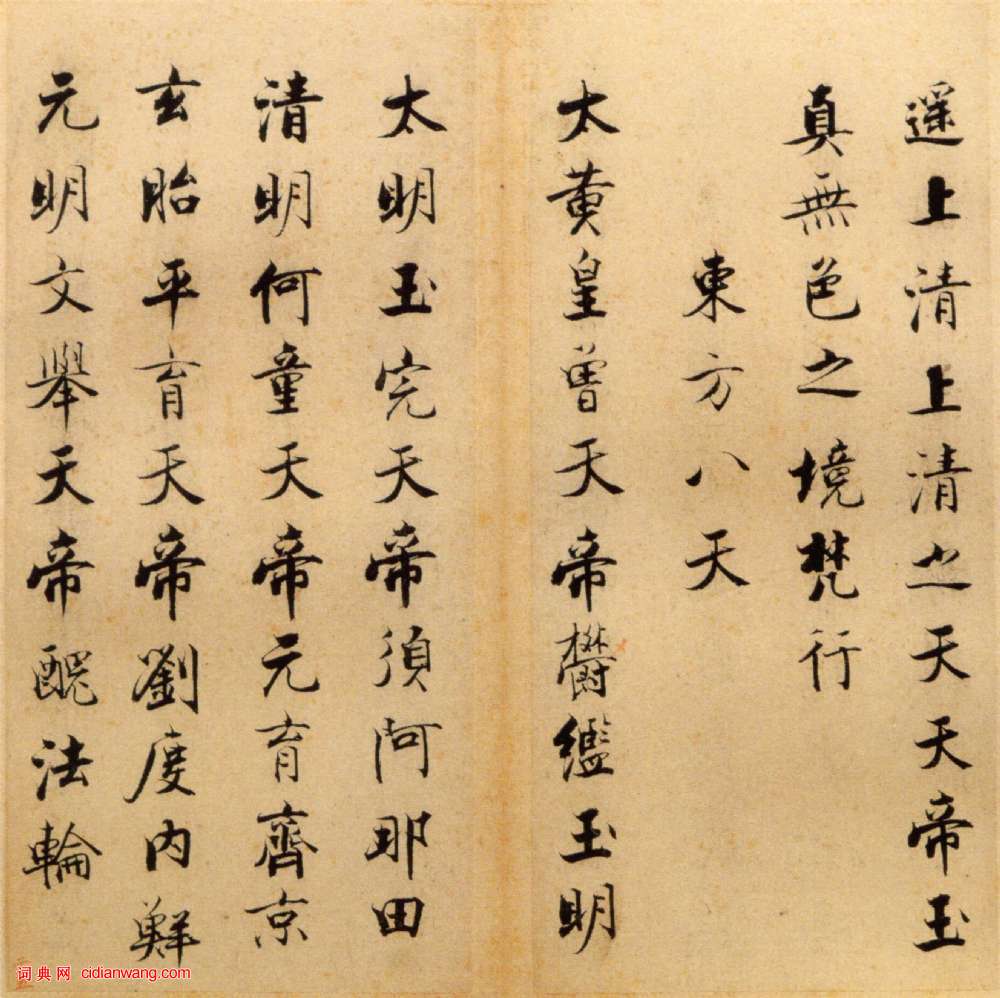 遥上清上清之天天帝玉
真無色之境梵行
東方八天
太黄皇曾天帝欝繿玉明
太明玉完天帝須阿那田
清明何童天帝元育齊京
玄胎平育天帝劉度内鮮
元明文舉天帝醜法輪
词典网 cidianwang.com